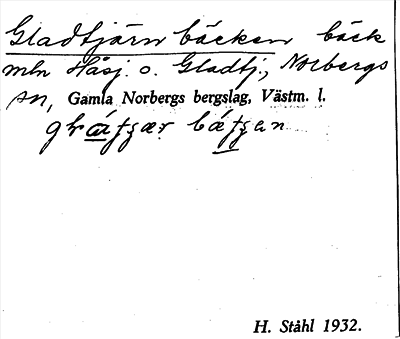 Gladtjärnbäcken bäck
mln Häsj. o. Gladtj., Norbergs
sn, Gamla Norbergs bergslag, Västm. l.
H. Ståhl 1932.